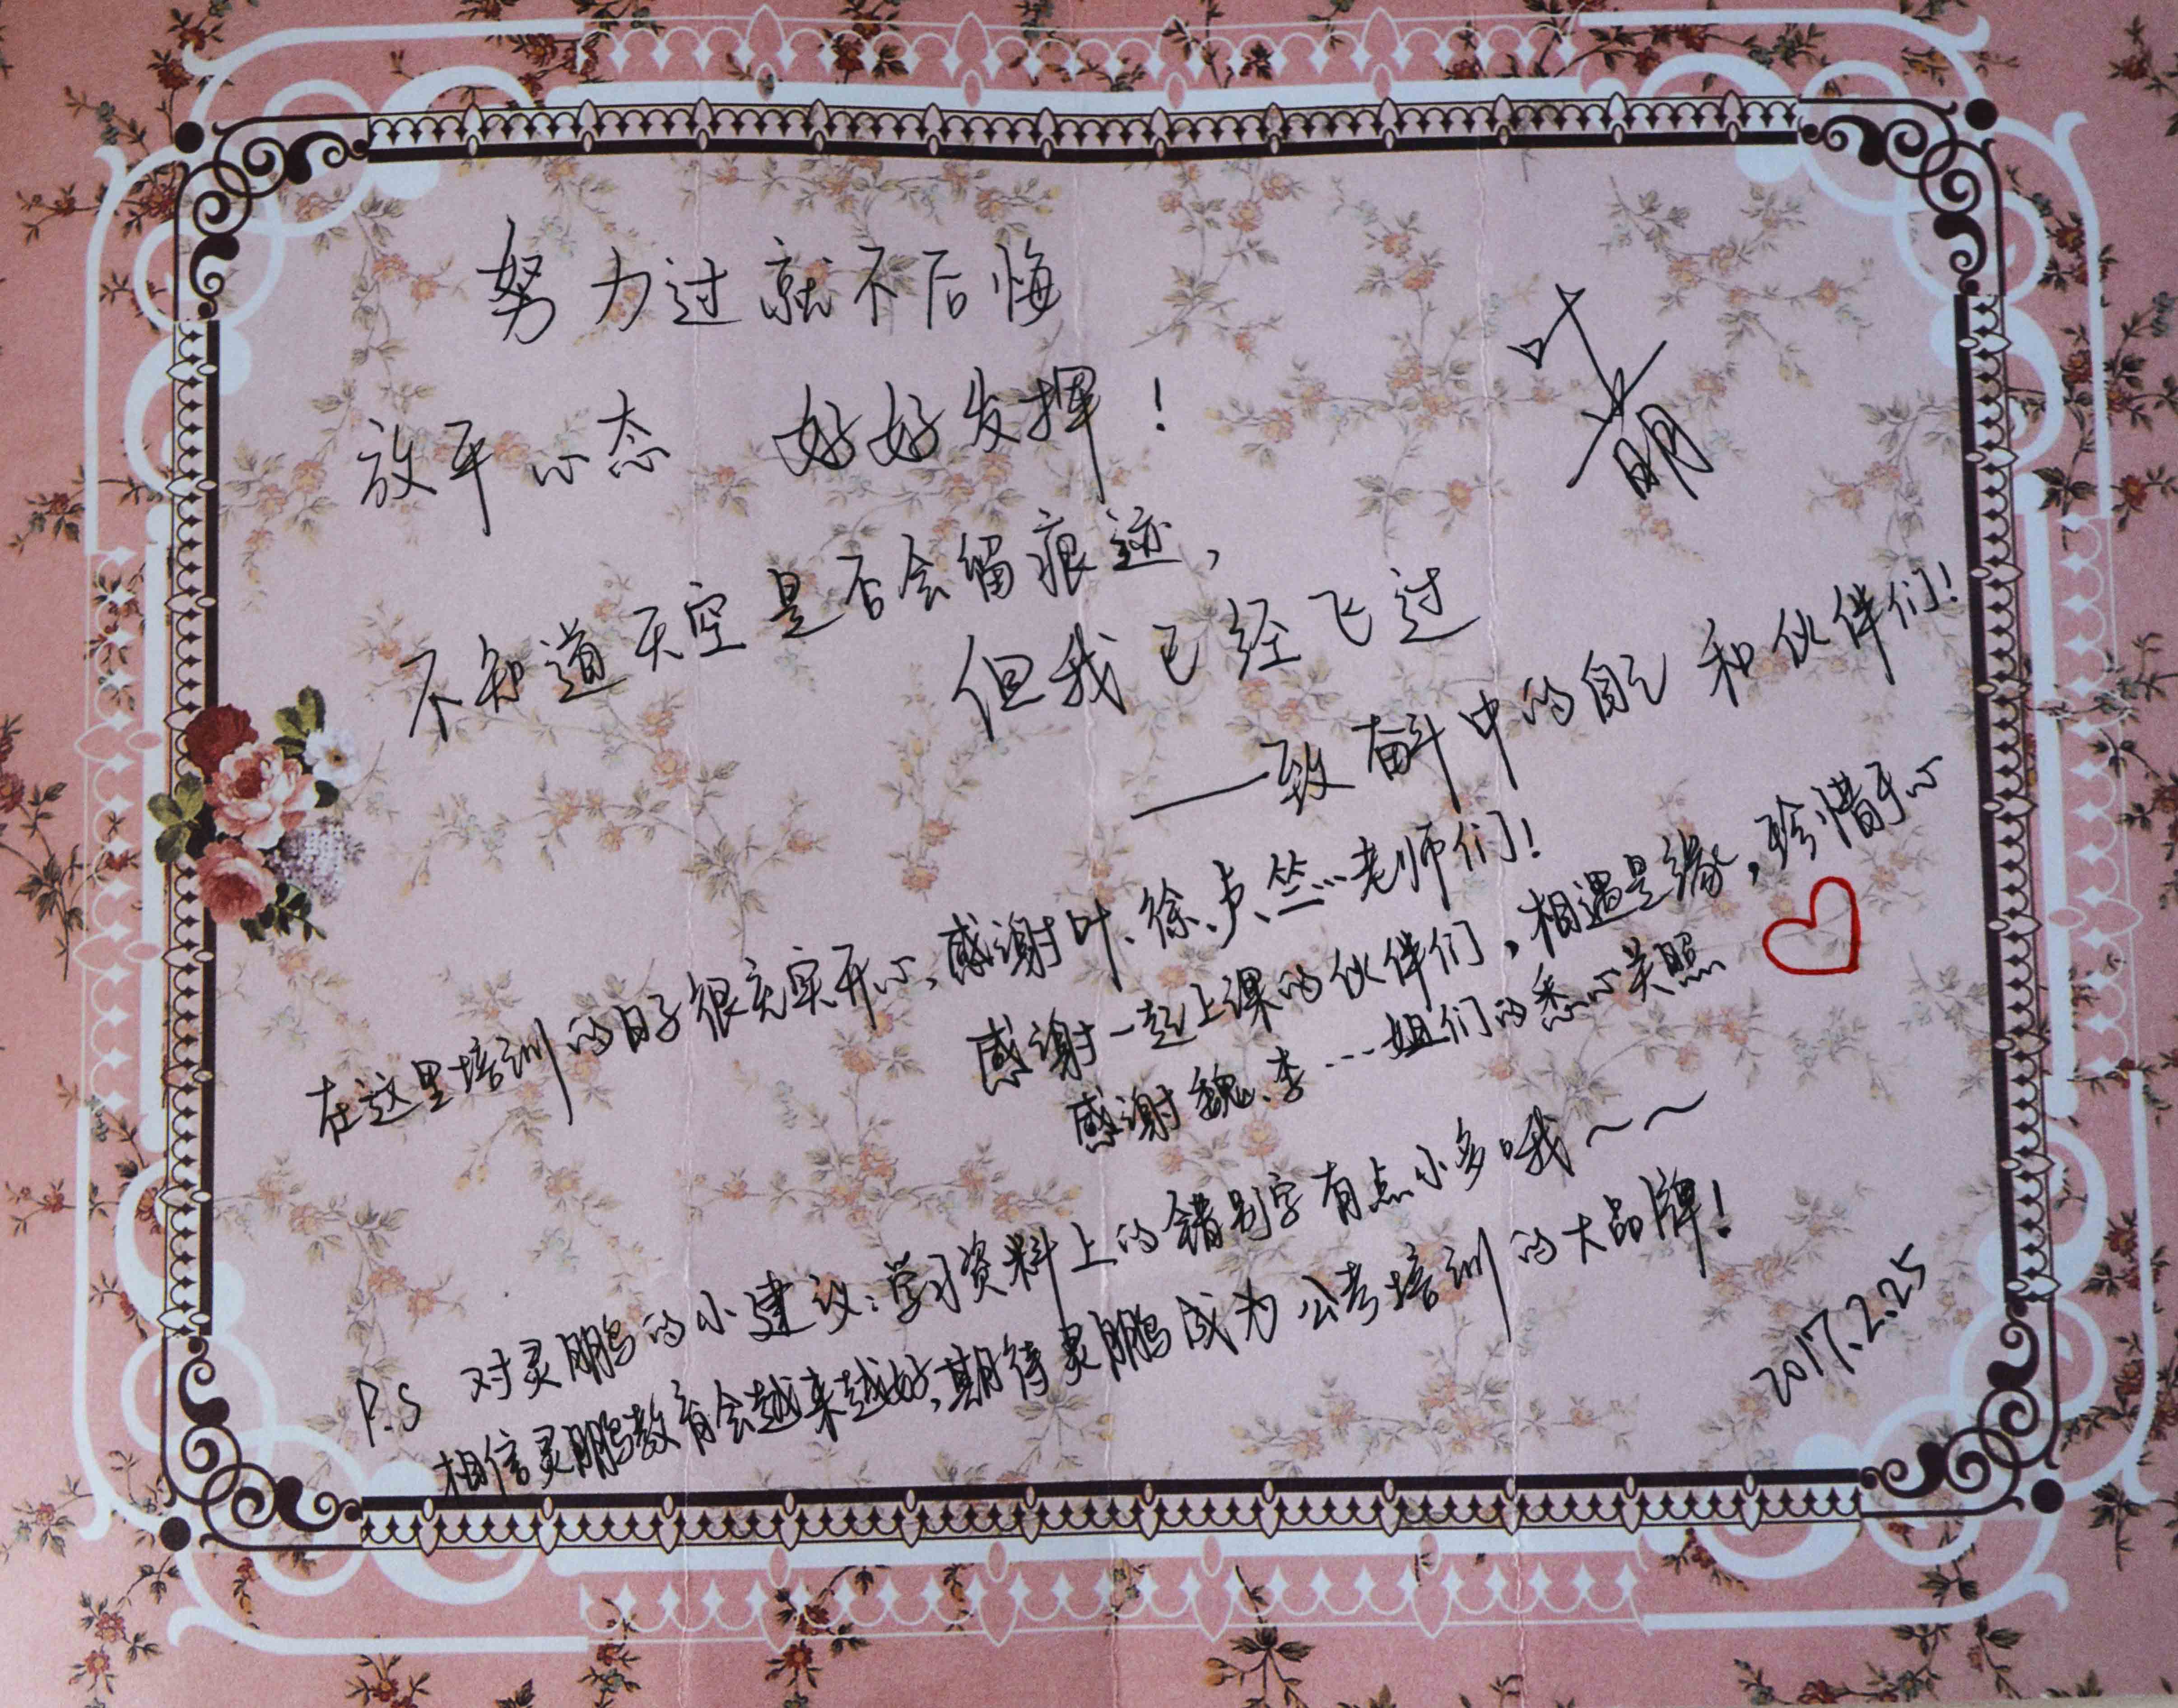 努力过就不后悔
放平心态 好好发挥！
叶萌
不知道天空是否会留痕迹，
但我已经飞过
——致奋斗中的自己和伙伴们！
在这里培训的日子很充实开心，感谢叶、徐、卢、竺…老师们！
感谢一起上课的伙伴们，相遇是缘，珍惜于心
感谢魏、李…姐们的悉心关照
P.S 对灵鹏的小建议：学习资料上的错别字有点小多哦～～
相信灵鹏教育会越来越好，期待灵鹏成为公考培训的大品牌！
2017.2.25